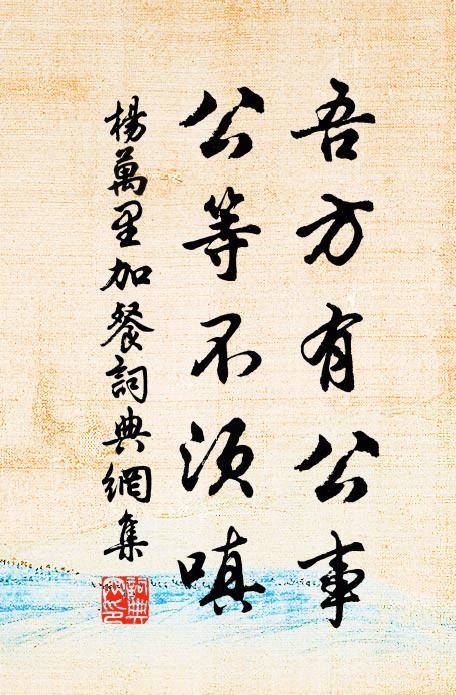 吾方有公事
公等不須嗔
楊萬里加餐詞典網集